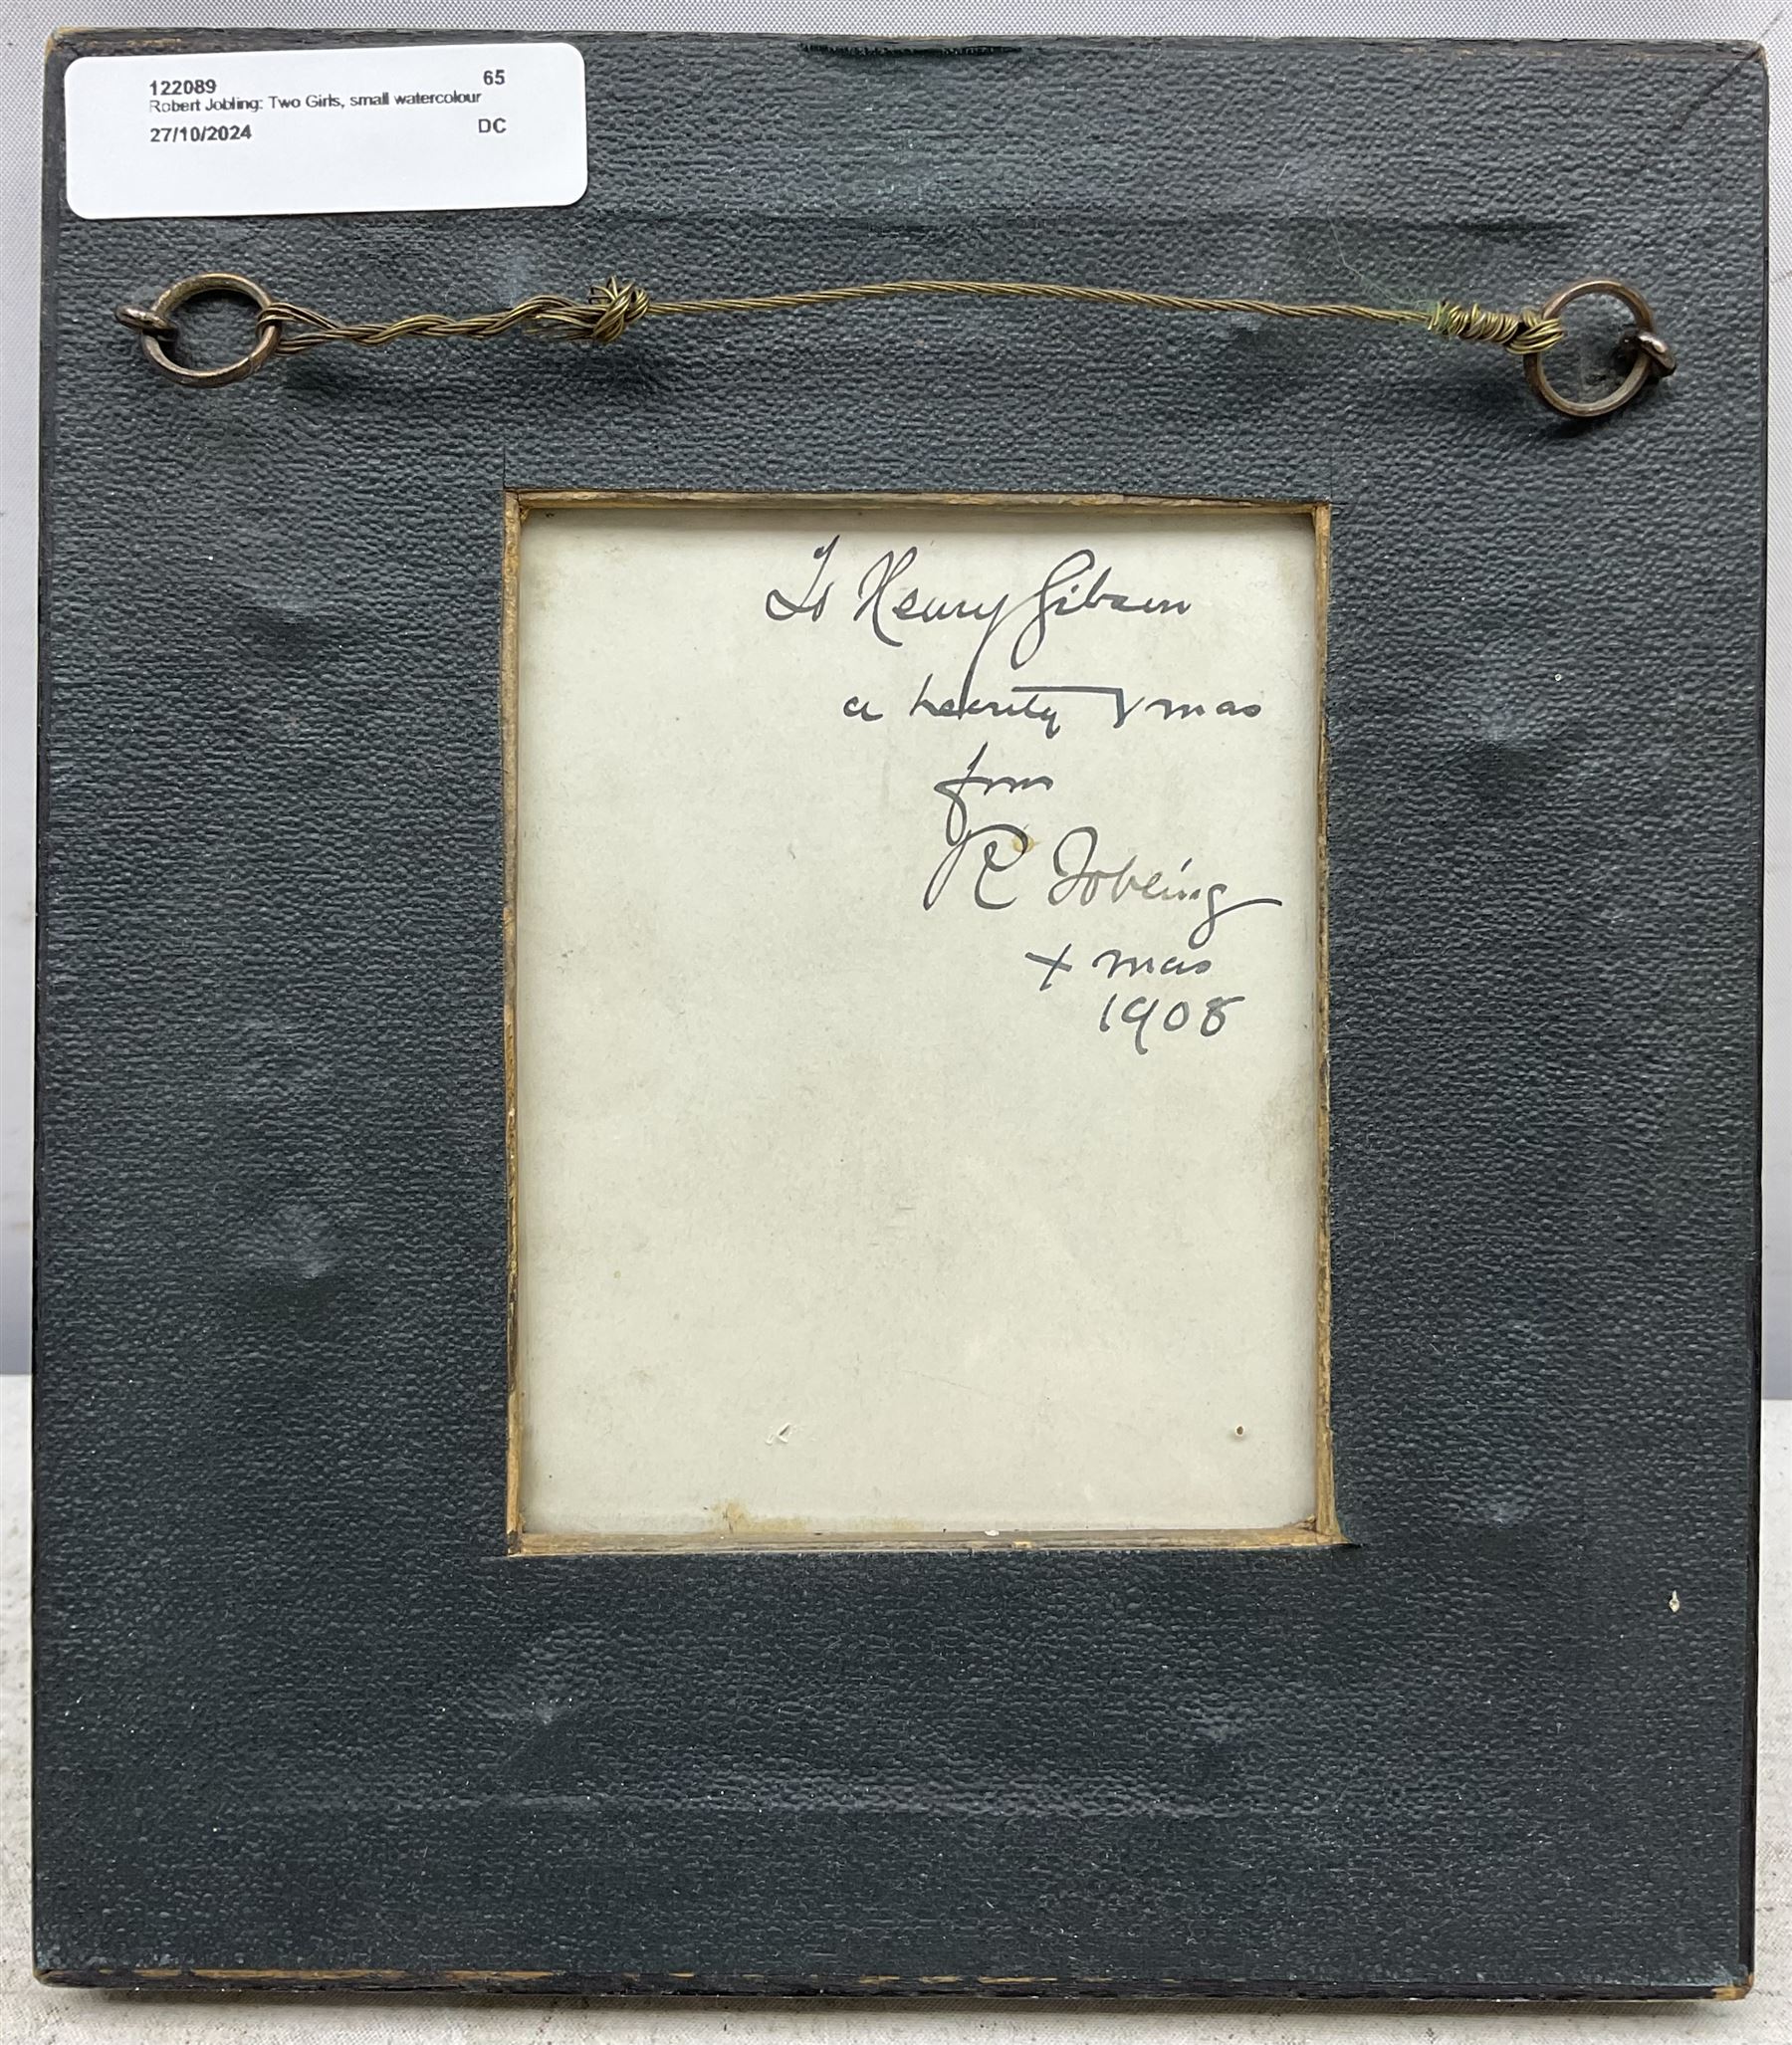 122089 65
Robert Jobling: Two Girls, small watercolour
27/10/2024 DC
To Henry Gibson
a hearty Xmas
from
R Jobling
Xmas
1908